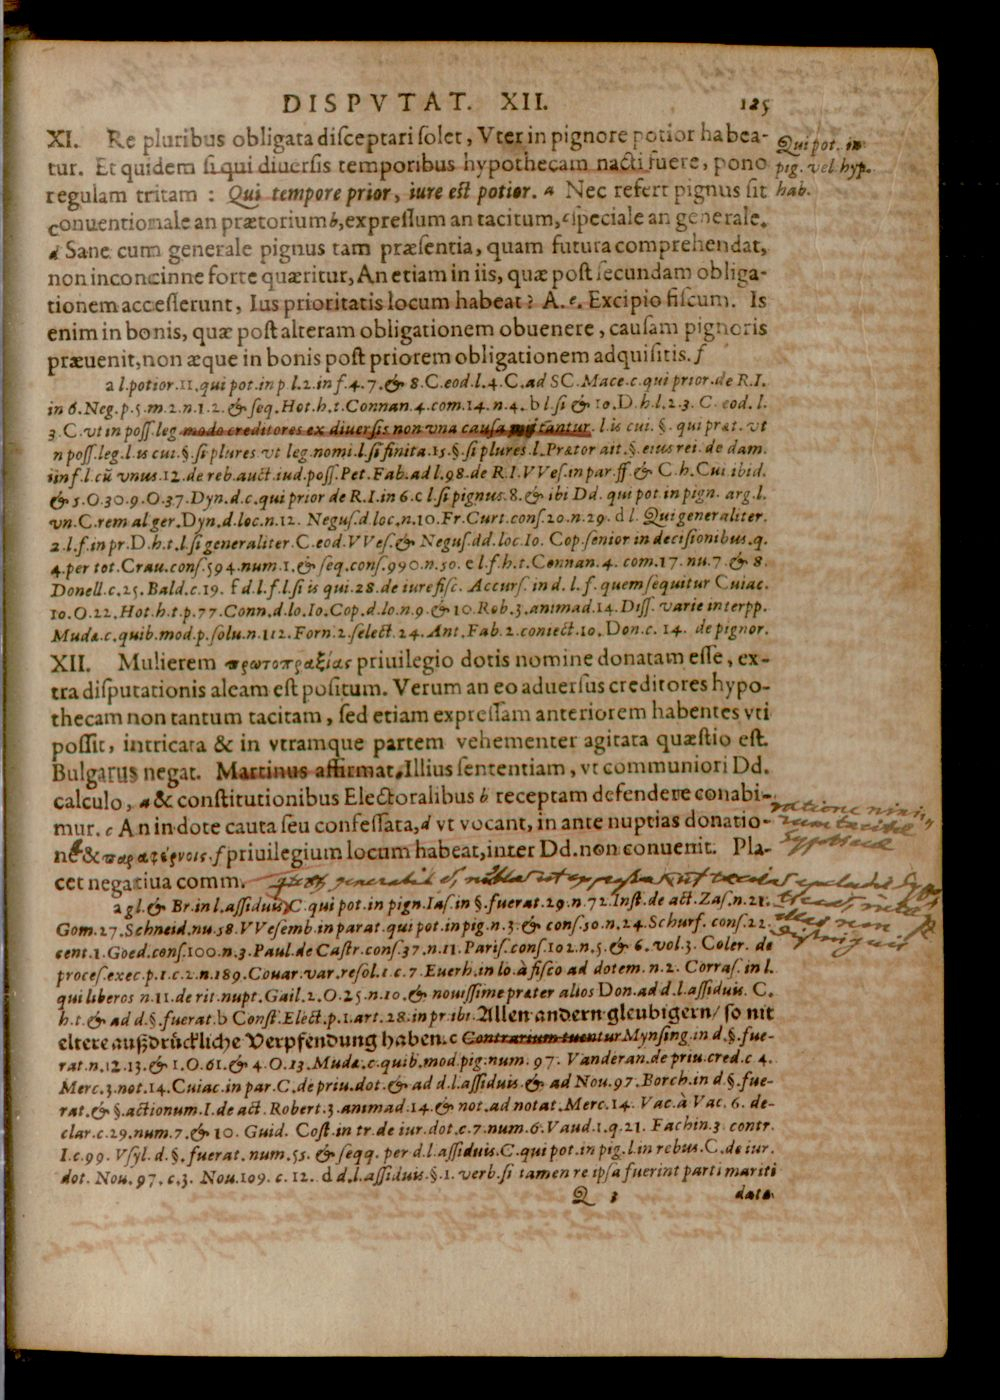 DISPVTAT. XII. 125
XI. Re pluribus obligata disceptari solet, Vter in pignore potior habea-
tur. Et quidem si qui diuersis temporibus hypothecam nacti fuere, pono
regulam tritam : Qui tempore prior, iure est potior. a Nec refert pignus sit
conuentionale an prætorium b, expressum an tacitum, c speciale an generale.
d Sane cum generale pignus tam præsentia, quam futura comprehendat,
non inconcinne forte quæritur, An etiam in iis, quæ post secundam obliga-
tionem accesserunt, Ius prioritatis locum habeat? A. e. Excipio fiscum. Is
enim in bonis, quæ post alteram obligationem obuenere, causam pignoris
præuenit, non æque in bonis post priorem obligationem adquisitis. f
Qui pot. in
pig. vel hyp.
hab.
a l. potior. 11. qui pot. in p l. 2. in f. 4. 7. & 8. C. eod. l. 4. C. ad SC. Mace. c. qui prior. de R. I.
in 6. Neg. p. 5. m. 2. n. 1. 2. & seq. Hot. h. t. Connan. 4. com. 14. n. 4. b l. si & 10. D. h. l. 2. 3. C. eod. l.
3. C. vt in poss. leg. modo creditores ex diuersis non vna causa mittantur. l. is cui. §. qui præt. vt
n poss. leg. l. is cui. §. si plures vt leg. nomi. l. si finita. 15. §. si plures l. Prætor ait §. eius rei. de dam.
iinf. l. cũ vnus. 12. de reb. auct. iud. poss. Pet. Fab. ad l. 98. de R. I. VVes. in par. ff. & C. h. Cui ibid.
& 5. O. 30. 9. O. 37. Dyn. d. c. qui prior de R. I. in 6. c l. si pignus. 8. & ibi Dd. qui pot. in pign. arg. l.
vn. C. rem al ger. Dyn. d. loc. n. 12. Negus. d loc. n. 10. Fr. Curt. cons. 20. n. 29. d l. Qui generaliter.
2. l. f. in pr. D. h. t. l. si generaliter. C. eod. VVes. & Negus. dd. loc. Io. Cop. senior in decisionibus. q.
4. per tot. Crau. cons. 594. num. 1. & seq. cons. 990. n. 50. e l. f. h. t. Connan. 4. com. 17. nu. 7. & 8.
Donell. c. 25. Bald. c. 19. f d. l. f. l. si is qui. 28. de iure fisc. Accurs. in d. l. f. quem sequitur Cuiac.
10. O. 22. Hot. h. t. p. 77. Conn. d. lo. Io. Cop. d. lo. n. 9. & 10. Rob. 3. animad. 14. Diss. varie interpp.
Mudæ. c. quib. mod. p. solu. n. 112. Forn. 2. select. 24. Ant. Fab. 2. coniect. 10. Don. c. 14. de pignor.
XII. Mulierem πρωτοπραξίας priuilegio dotis nomine donatam esse, ex-
tra disputationis aleam est positum. Verum an eo aduersus creditores hypo-
thecam non tantum tacitam, sed etiam expressam anteriorem habentes vti
possit, intricata & in vtramque partem vehementer agitata quæstio est.
Bulgarus negat. Martinus affirmat. Illius sententiam, vt communiori Dd.
calculo, a & constitutionibus Electoralibus b receptam defendere conabi-
mur. c An in dote cauta seu confessata, d vt vocant, in ante nuptias donatio-
ne & παραφέρνοις. f priuilegium locum habeat, inter Dd. non conuenit. Pla-
cet negatiua comm.
a gl. & Br. in l. assiduis C. qui pot. in pign. Ias. in §. fuerat. 29. n. 72. Inst. de act. Zas. n. 21.
Gom. 27. Schneid. nu. 58. VVesemb. in parat. qui pot. in pig. n. 3. & cons. 50. n. 24. Schurf. cons. 22.
cent. 1. Goed. cons. 100. n. 3. Paul. de Castr. cons. 37. n. 11. Paris. cons. 102. n. 5. & 6. vol. 3. Coler. de
proces. exec. p. 1. c. 2. n. 189. Couar. var. resol. 1. c. 7. Euerh. in lo. à fisco ad dotem. n. 2. Corras. in l.
qui liberos n. 11. de rit. nupt. Gail. 2. O. 25. n. 10. & nouissime præter alios Don. ad d. l. assiduis. C.
h. t. & ad d. §. fuerat. b Const. Elect. p. 1. art. 28. in pr. ibi. Allen andern gleubigern / so nit
eltere außdrückliche Verpfendung haben. c Contrarium tuentur Mynsing. in d. §. fue-
rat. n. 12. 13. & 1. O. 61. & 4. O. 13. Mudæ. c. quib. mod. pig. num. 97. Vanderan. de priu. cred. c 4.
Merc. 3. not. 14. Cuiac. in par. C. de priu. dot. & ad d. l. assiduis & ad Nou. 97. Borch. in d. §. fue-
rat. & §. actionum. I. de act. Robert. 3. animad. 14. & not. ad notat. Merc. 14. Vac. à Vac. 6. de-
clar. c. 29. num. 7. & 10. Guid. Cost. in tr. de iur. dot. c. 7. num. 6. Vaud. 1. q. 21. Fachin. 3. contr.
I. c. 99. Vsyl. d. §. fuerat. num. 55. & seqq. per d. l. assiduis. C. qui pot. in pig. l. in rebus. C. de iur.
dot. Nou. 97. c. 3. Nou. 109. c. 12. d d. l. assiduis. §. 1. verb. si tamen re ipsa fuerint parti mariti
Q 3 data